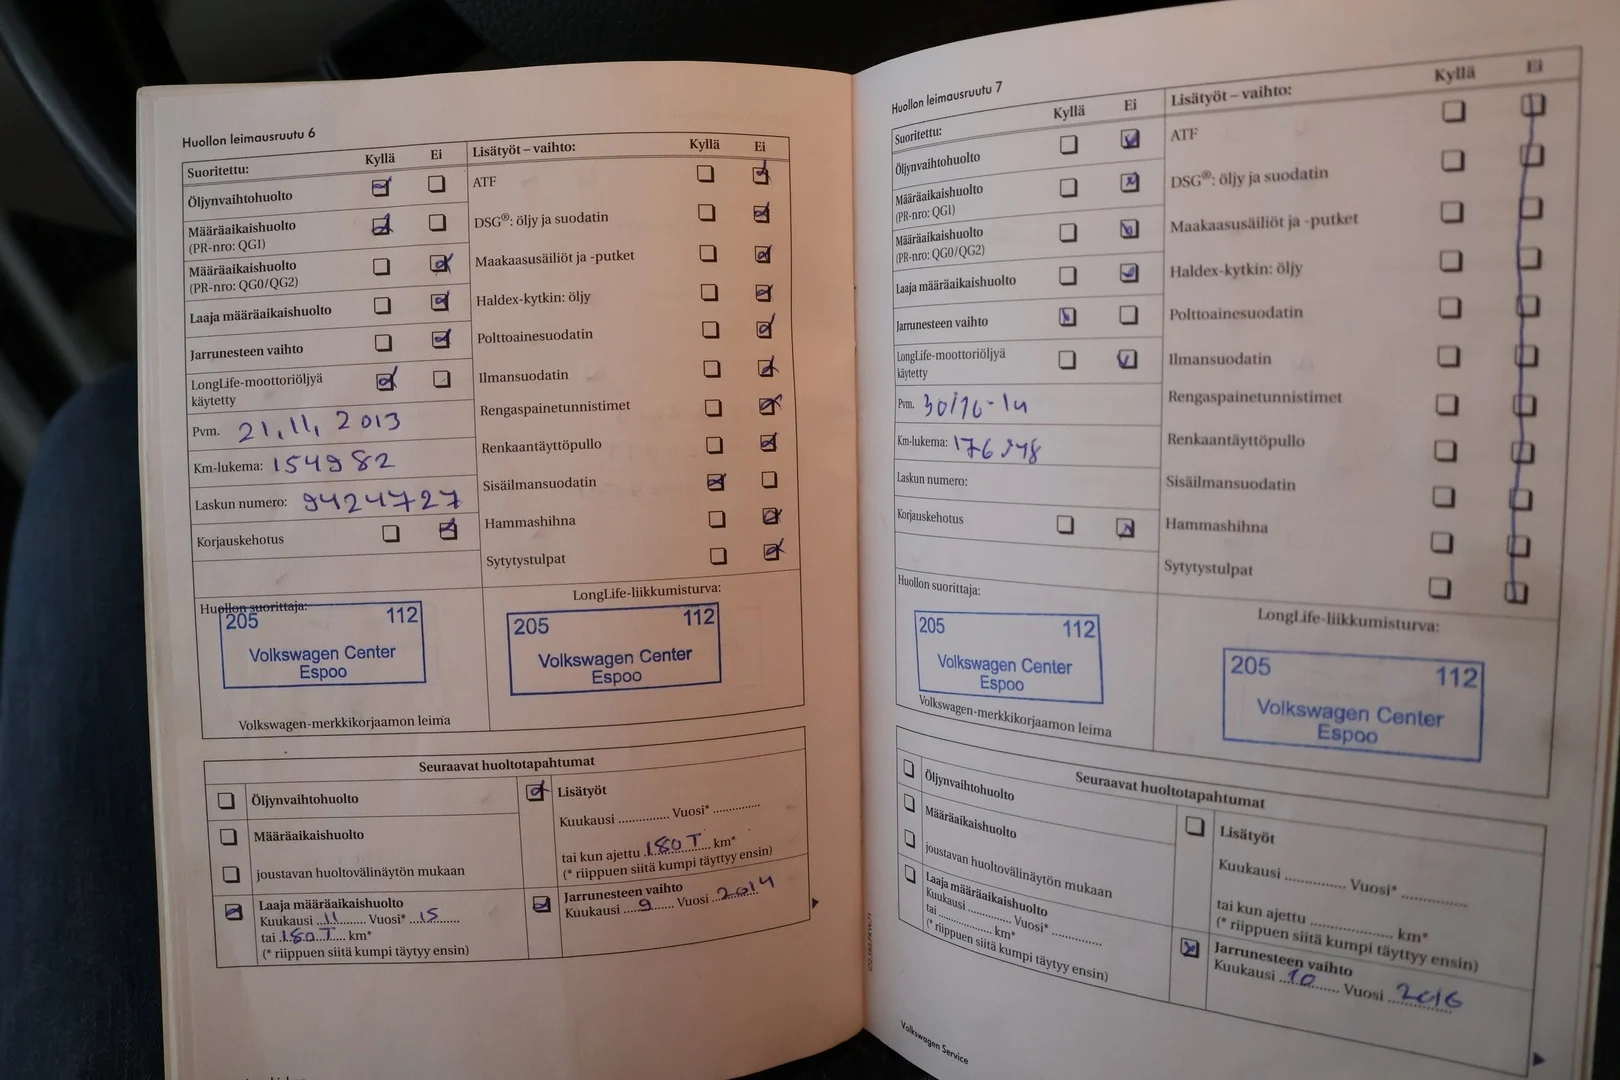 Huollon leimausruutu 6
Suoritettu: Kyllä Ei
Öljynvaihtohuolto
Määräaikaishuolto
(PR-nro: QG1)
Määräaikaishuolto
(PR-nro: QG0/QG2)
Laaja määräaikaishuolto
Jarrunesteen vaihto
LongLife-moottoriöljyä
käytetty
Pvm. 21.11. 2013
Km-lukema: 154982
Laskun numero: 9424727
Korjauskehotus
Lisätyöt – vaihto: Kyllä Ei
ATF
DSG®: öljy ja suodatin
Maakaasusäiliöt ja -putket
Haldex-kytkin: öljy
Polttoainesuodatin
Ilmansuodatin
Rengaspainetunnistimet
Renkaantäyttöpullo
Sisäilmansuodatin
Hammashihna
Sytytystulpat
Huollon suorittaja:
205 112
Volkswagen Center
Espoo
Volkswagen-merkkikorjaamon leima
LongLife-liikkumisturva:
205 112
Volkswagen Center
Espoo
Seuraavat huoltotapahtumat
Öljynvaihtohuolto
Määräaikaishuolto
joustavan huoltovälinäytön mukaan
Laaja määräaikaishuolto
Kuukausi 11 Vuosi* 15
tai 180 T km*
(* riippuen siitä kumpi täytyy ensin)
Lisätyöt
Kuukausi .............. Vuosi* ..............
tai kun ajettu 180 T km*
(* riippuen siitä kumpi täyttyy ensin)
Jarrunesteen vaihto
Kuukausi 9 Vuosi 2014
Huollon leimausruutu 7
Suoritettu: Kyllä Ei
Öljynvaihtohuolto
Määräaikaishuolto
(PR-nro: QG1)
Määräaikaishuolto
(PR-nro: QG0/QG2)
Laaja määräaikaishuolto
Jarrunesteen vaihto
LongLife-moottoriöljyä
käytetty
Pvm. 30/10-14
Km-lukema:
Laskun numero:
Korjauskehotus
Lisätyöt – vaihto: Kyllä Ei
ATF
DSG®: öljy ja suodatin
Maakaasusäiliöt ja -putket
Haldex-kytkin: öljy
Polttoainesuodatin
Ilmansuodatin
Rengaspainetunnistimet
Renkaantäyttöpullo
Sisäilmansuodatin
Hammashihna
Sytytystulpat
Huollon suorittaja:
205 112
Volkswagen Center
Espoo
Volkswagen-merkkikorjaamon leima
LongLife-liikkumisturva:
205 112
Volkswagen Center
Espoo
Seuraavat huoltotapahtumat
Öljynvaihtohuolto
Määräaikaishuolto
joustavan huoltovälinäytön mukaan
Laaja määräaikaishuolto
Kuukausi .............. Vuosi* ..............
tai .............. km*
(* riippuen siitä kumpi täyttyy ensin)
Lisätyöt
Kuukausi .............. Vuosi* ..............
tai kun ajettu .............. km*
(* riippuen siitä kumpi täyttyy ensin)
Jarrunesteen vaihto
Kuukausi 10 Vuosi 2016
Volkswagen Service